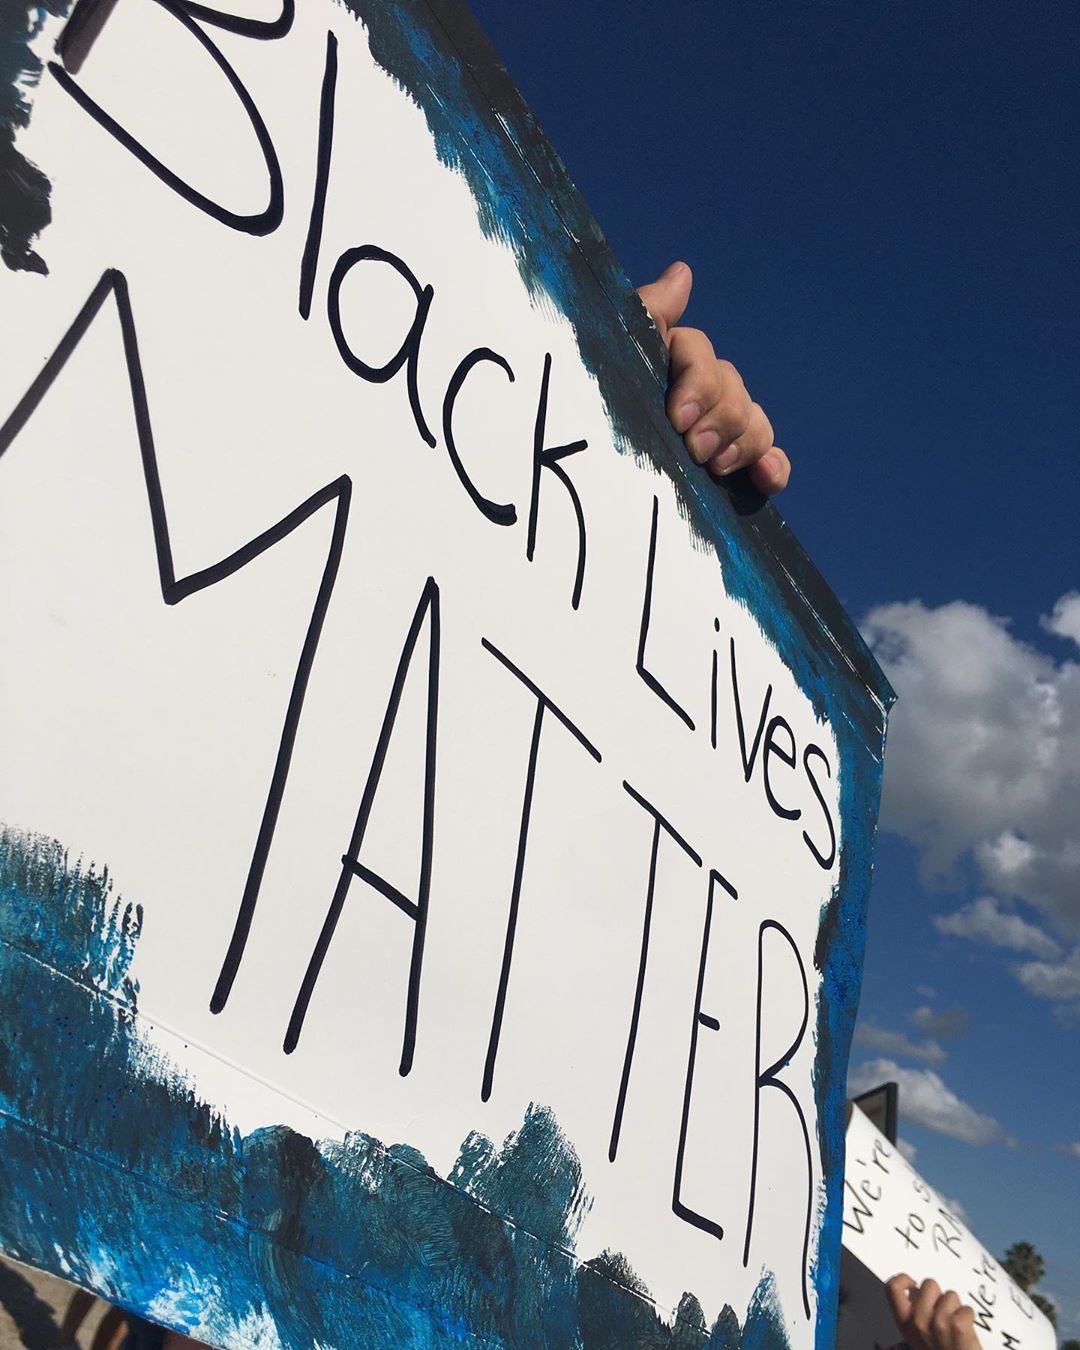 Black Lives
MATTER
We're
to
We're